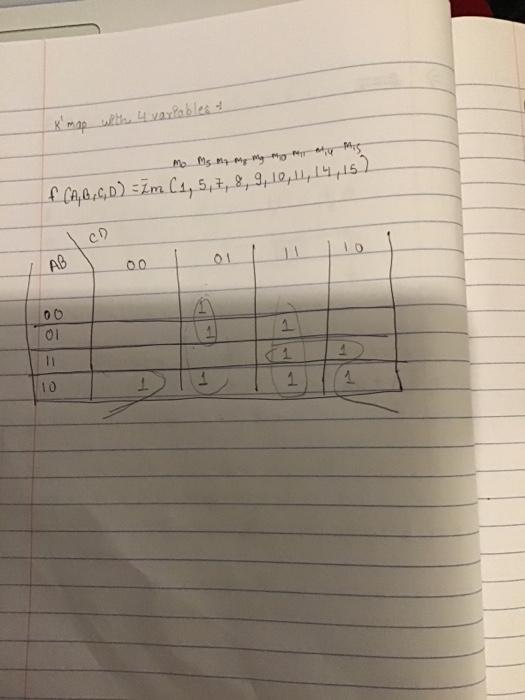 K'map with 4 variables:
m0 m5 m7 m8 m9 m10 m11 m14 m15
f (A,B,C,D) = Σm (1, 5, 7, 8, 9, 10, 11, 14, 15)
CD
AB 00 01 11 10
00 1
01 1 1
11 1 1
10 1 1 1 1